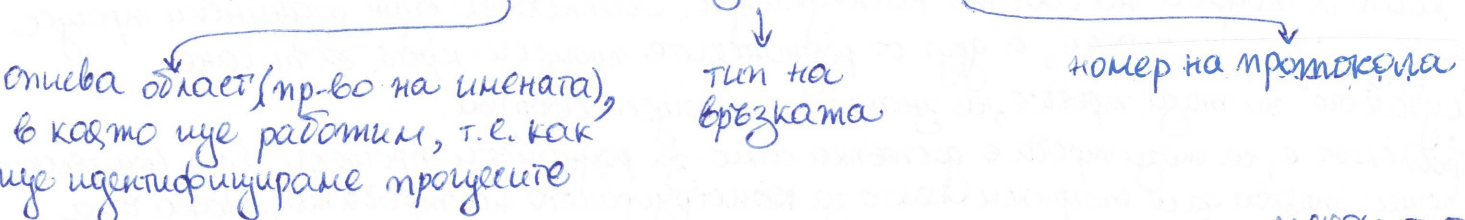 описва област (пр-во на имената),
в която ще работим, т.е. как
ще идентифицираме процесите
тип на
връзката
номер на протокола